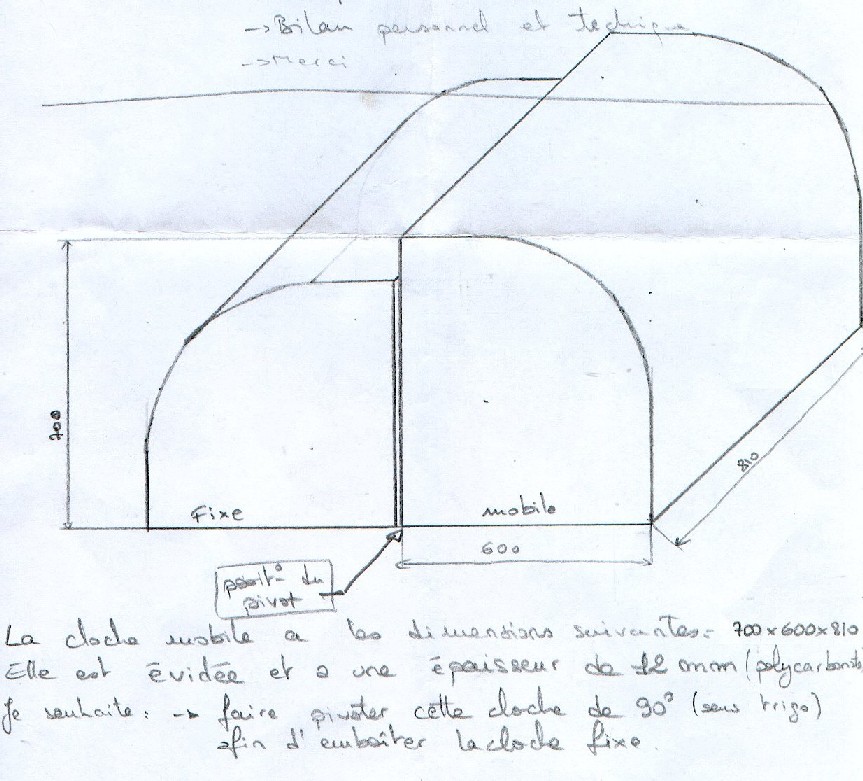 → Bilan personnel et technique
→ Merci
700
Fixe
mobile
600
810
posit° du
pivot
La cloche mobile a les dimensions suivantes = 700 x 600 x 810
Elle est évidée et a une épaisseur de 12 mm (polycarbonate
Je souhaite : → faire pivoter cette cloche de 90° (sens trigo)
afin d'emboîter la cloche fixe.